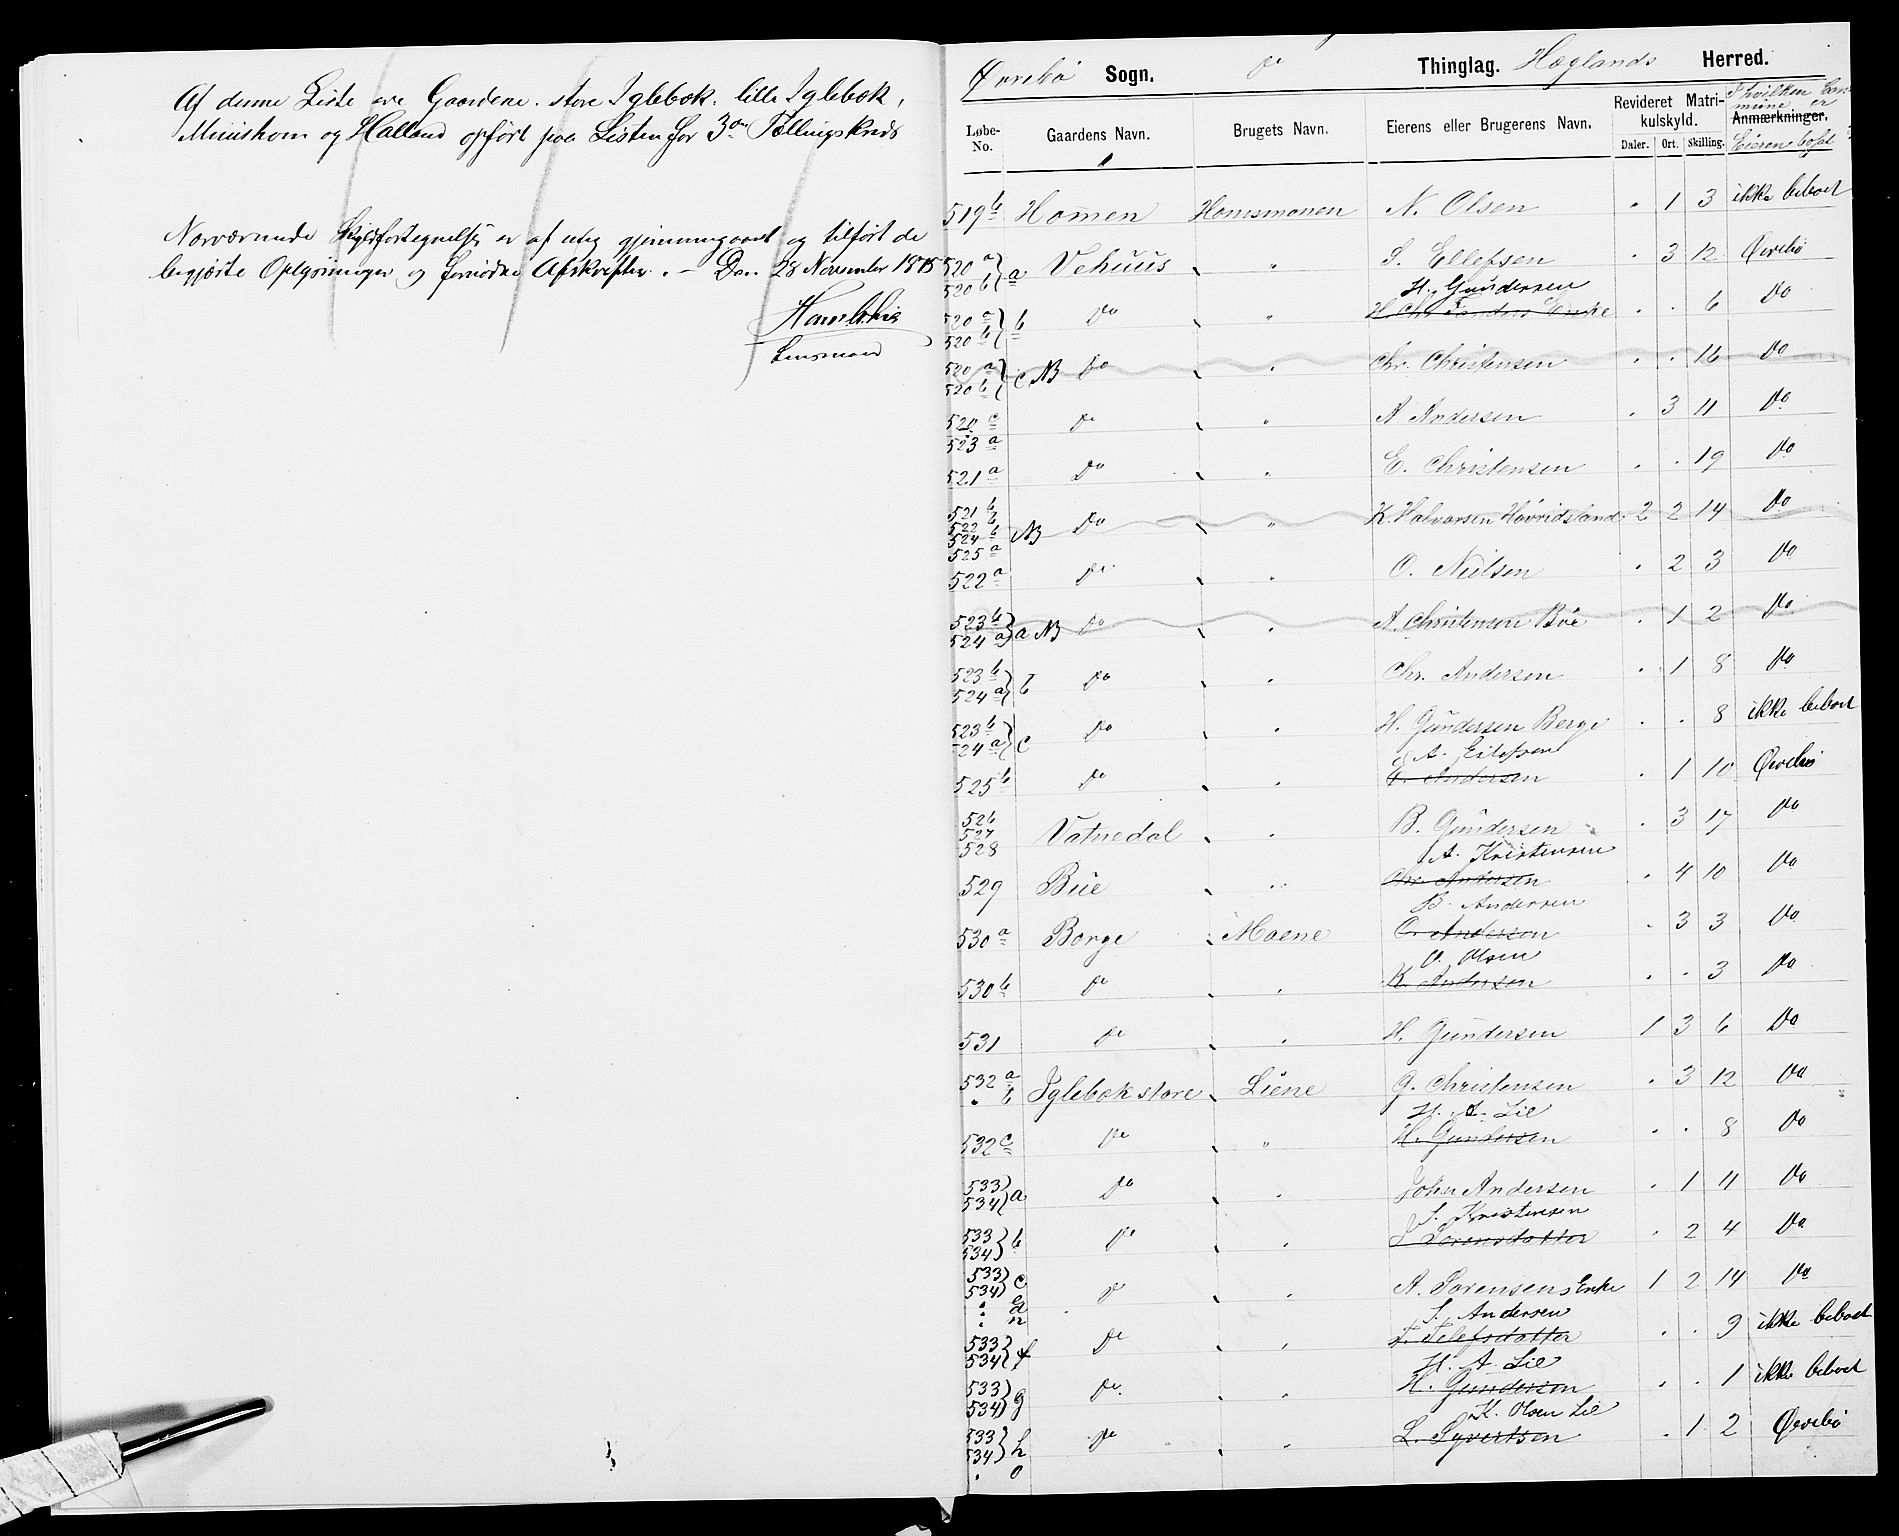 Af denne Liste ere Gaardene. store Iglebæk. lille Iglebæk,
og Halland opført paa Listen for 3die Tællingskreds
Nærværende er af mig gjennemgaaet og tilført de
begjærte Oplysninger og Afskrifter. - Den 28 November 1875
Lensmand
Øvrebø Sogn. Do Thinglag. Hæglands Herred.
Løbe-No. Gaardens Navn. Brugets Navn. Eierens eller Brugerens Navn. Revideret Matrikulskyld. Daler. Ort. Skilling. Anmærkninger. I hvilken Commune er Eieren bosat
519 b Homen Homsmonen N. Olsen " 1 3 ikke beboet
520 a 520 b } a Vehuus " S. Ellefsen " 3 12 Øvrebø
H. Gundersen
520 a 520 b } b Do " H. Chr. Enke " " 6 Do
520 a 520 b } c NB Do " Chr. Christensen " " 16 Do
520 c 523 a Do " A Andersen " 3 11 Do
521 a Do " E. Christensen " " 19 Do
521 b 522 b 524 b 525 a NB Do " K. Halvorsen Høvridsland 2 2 14 Do
522 a Do " O. Nielsen " 2 3 Do
523 b 524 a } a NB Do " A. Christensen Böe " 1 2 Do
523 b 524 a } b Do " Chr. Andersen " 1 8 Do
523 b 524 a } c Do " H. Gundersen Berge " " 8 ikke beboet
A. Eilefsen
525 b Do " Andersen " 1 10 Øvrebø
526 527 528 Vatnedal " B. Gundersen " 3 17 Do
A. Kristensen
529 Büe " Chr. Andersen " 4 10 Do
B. Andersen
530 a Borge Moene O. Andersen " 3 3 Do
O. Olsen
530 b Do " K. Andersen " " 3 Do
531 Do " H. Gundersen 1 3 6 Do
532 a " b Iglebæk store Liene G. Christensen " 3 12 Do
H. A. Lie
532 c Do " H. Gundersen " " 8 Do
533 534 } a Do " John Andersen " 1 11 Do
S. Kristensen
533 534 } b Do " S Sorensdatter " 2 4 Do
533 534 } c Do " A. Sorensens Enke 1 2 14 Do
S. Andersen
533 534 } f Do " T. Telefsdatter " " 9 ikke beboet
H. A. Lie
533 534 } g Do " H. Gunderson " " 1 ikke beboet
K. Olsen Lie
533 534 } h " o Do " L. Syvertsen " 1 2 Øvrebø